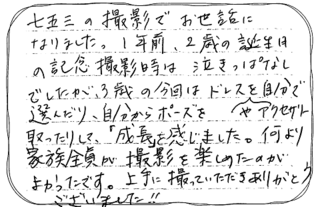 七五三の撮影でお世話に
なりました。1年前、2歳の誕生日
の記念撮影時は泣きっぱなし
でしたが、3歳の今回はドレスを自分で
選んだり、自分からポーズを やアクセサリー
取ったりして、「成長を感じました。何より
家族全員が撮影を楽しめたのが
よかったです。上手に撮っていただきありがとう
ございました!!